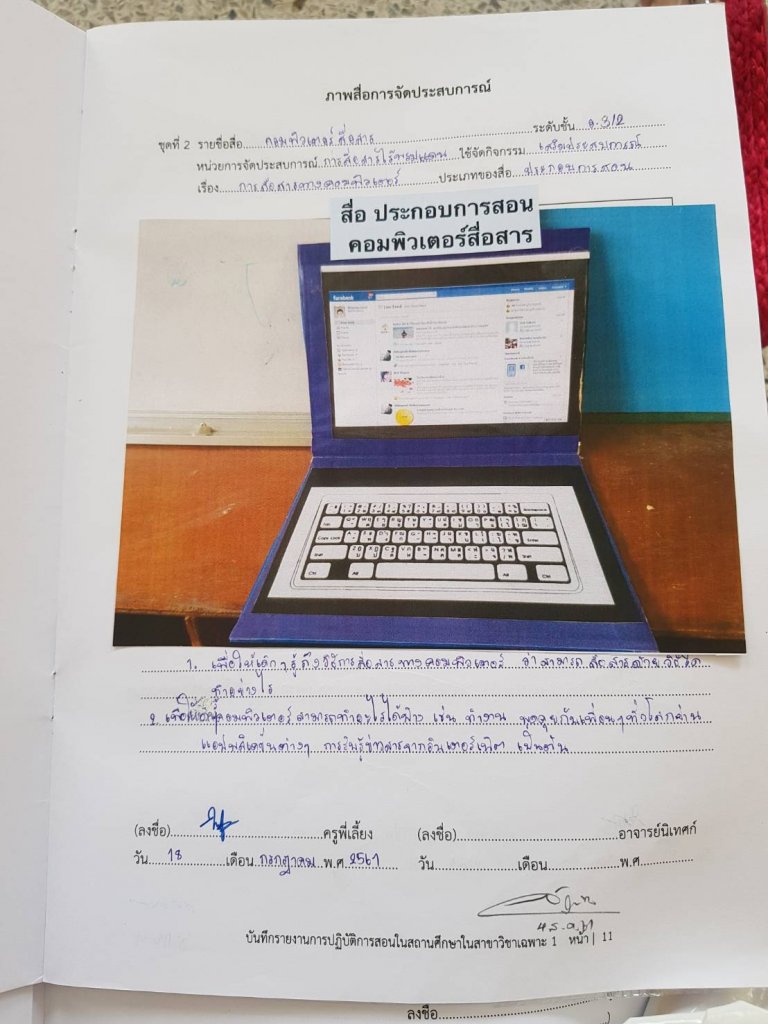 ภาพสื่อการจัดประสบการณ์
ชุดที่ 2 รายชื่อสื่อ คอมพิวเตอร์สื่อสาร ระดับชั้น อ.3/2
หน่วยการจัดประสบการณ์ การสื่อสารไร้พรมแดน ใช้จัดกิจกรรม เสริมประสบการณ์
เรื่อง การสื่อสารทางคอมพิวเตอร์ ประเภทของสื่อ ประกอบการสอน
สื่อ ประกอบการสอน
คอมพิวเตอร์สื่อสาร
facebook
1. เพื่อให้เด็กๆรู้ถึงวิธีการสื่อสารทางคอมพิวเตอร์ ว่าสามารถสื่อสารด้วยวิธีใด
ทำอย่างไร
2. คอมพิวเตอร์สามารถทำอะไรได้บ้าง เช่น ทำงาน พูดคุยกับเพื่อนๆทั่วโลกผ่าน
แอปพลิเคชั่นต่างๆ การรับรู้ข่าวสารจากอินเตอร์เน็ต เป็นต้น
(ลงชื่อ) ครูพี่เลี้ยง (ลงชื่อ) อาจารย์นิเทศก์
วัน 18 เดือน กรกฎาคม พ.ศ 2561 วัน เดือน พ.ศ.
บันทึกรายงานการปฏิบัติการสอนในสถานศึกษาในสาขาวิชาเฉพาะ 1 หน้า| 11
ลงชื่อ